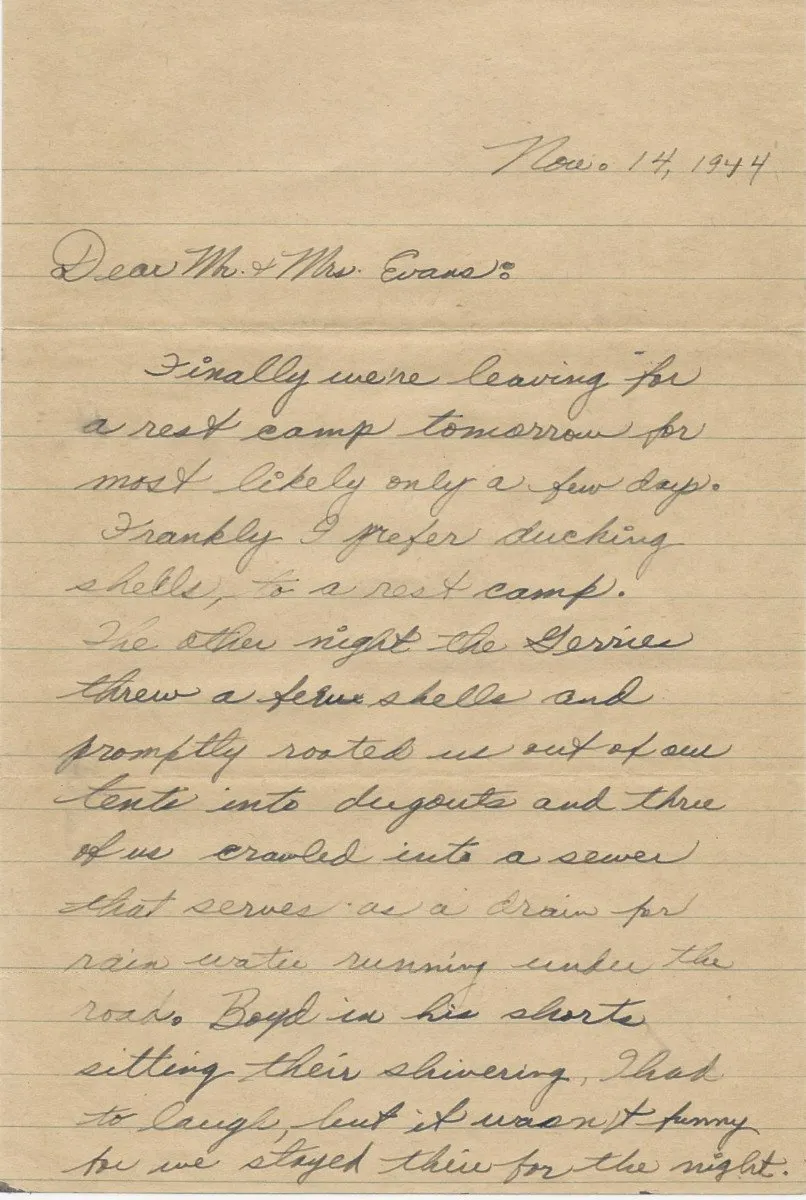 Nov. 14, 1944
Dear Mr. & Mrs. Evans:
Finally we're leaving for
a rest camp tomorrow for
most likely only a few days.
Frankly I prefer ducking
shells, to a rest camp.
The other night the Gerries
threw a few shells and
promptly rooted us out of our
tents into dugouts and three
of us crawled into a sewer
that serves as a drain for
rain water running under the
road. Boyd in his shorts
sitting their shivering, I had
to laugh, but it wasn't funny
for we stayed their for the night.